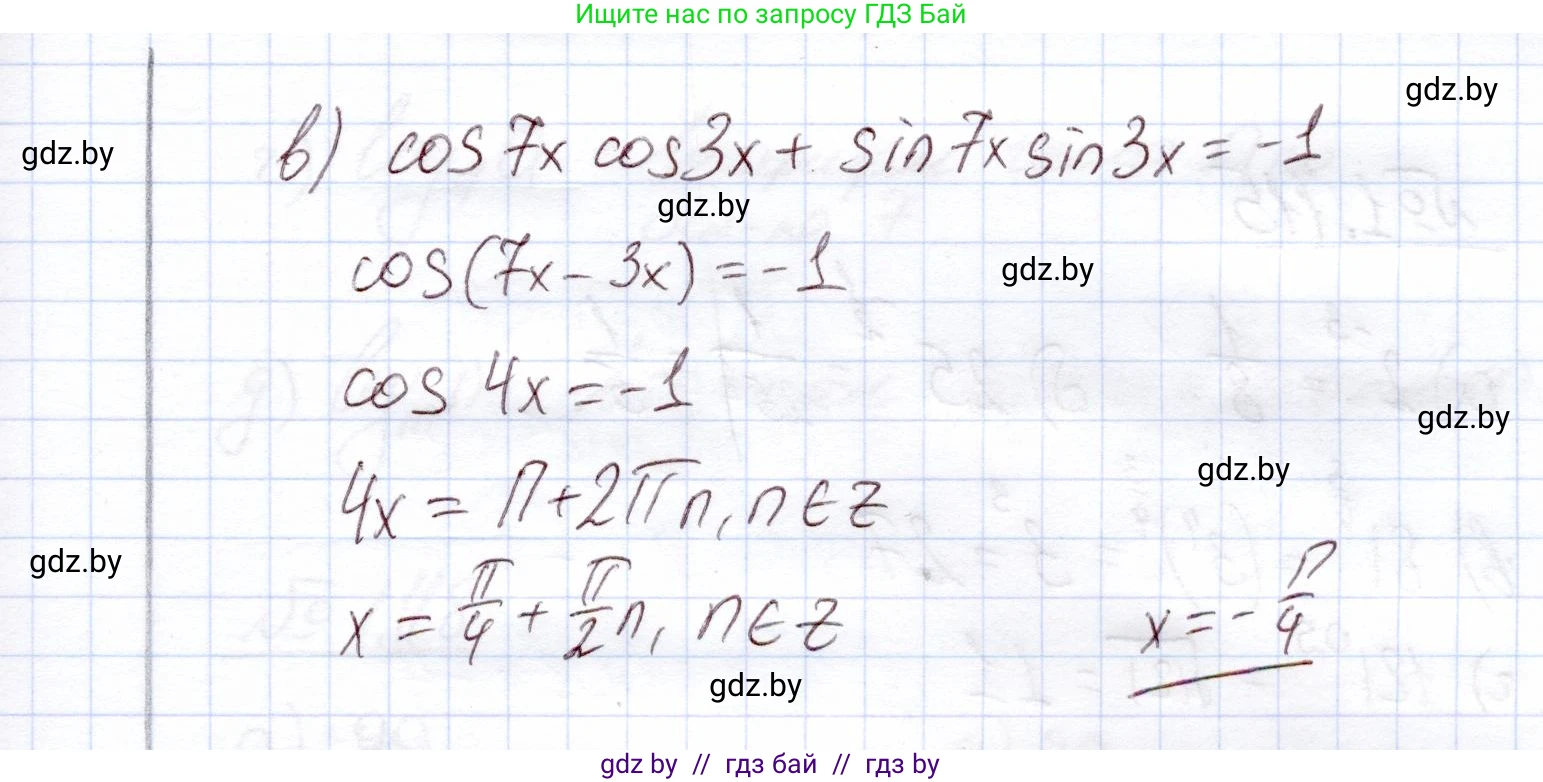 Ищите нас по запросу ГДЗ Бай
gdz.by
в) cos7x cos3x + sin7x sin3x = -1
gdz.by
gdz.by
cos(7x - 3x) = -1
gdz.by
cos 4x = -1
gdz.by
gdz.by
4x = π + 2πn, n ∈ z
gdz.by
x = π/4 + π/2 n, n ∈ z
x = - π/4
gdz.by
gdz by // гдз бай // гдз by